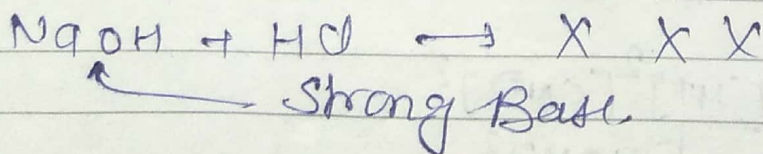 NaOH + HCl → X X X
Strong Base